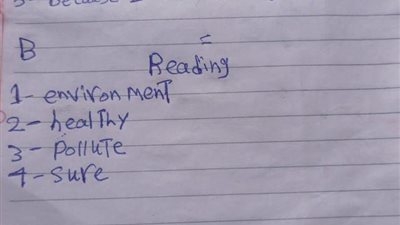 5- because
B
Reading
1- environment
2- healthy
3- pollute
4- sure